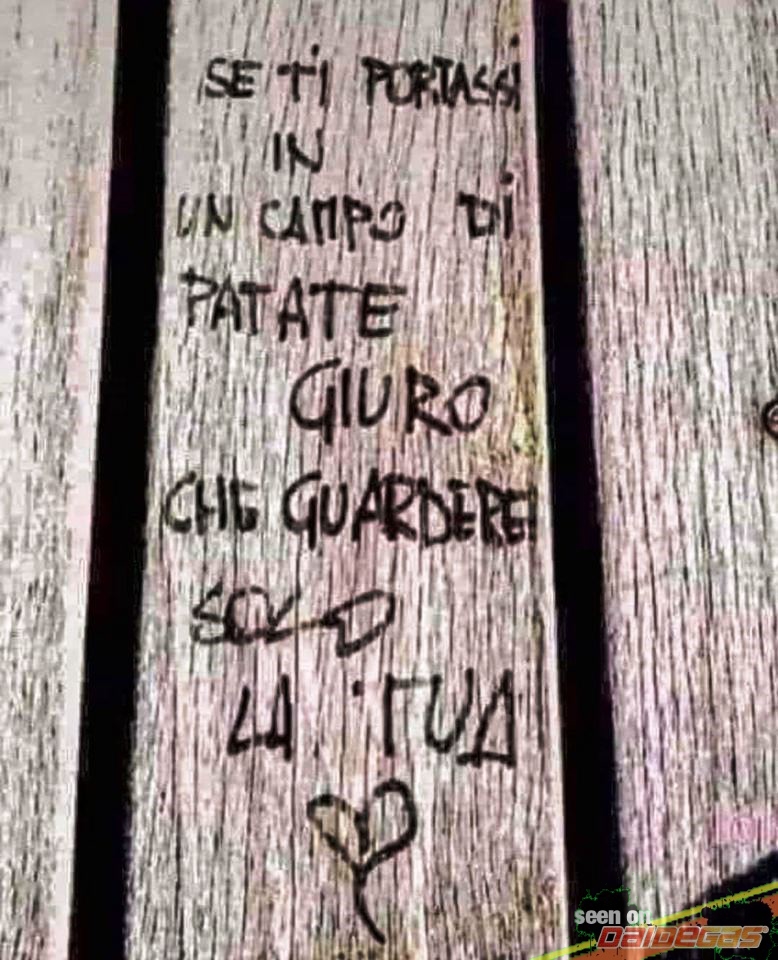 SE TI PORTASSI
IN
UN CAMPO DI
PATATE
GIURO
CHE GUARDEREI
SOLO
LA TUA
seen on
DAIDEGAS